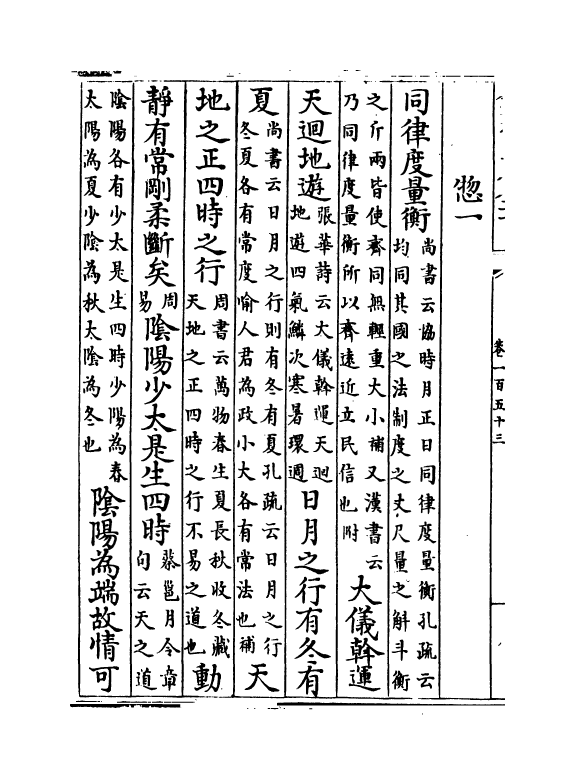 卷一百五十三
惣一
同律度量衡尚書云協時月正日同律度量衡孔疏云均同其國之法制度之丈尺量之斛斗衡
之斤兩皆使齊同無輕重大小補又漢書云乃同律度量衡所以齊遠近立民信也附大儀幹運
天迴地遊張華詩云大儀幹運天迴地遊四氣鱗次寒暑環週日月之行有冬有
夏尚書云日月之行則有冬有夏孔疏云日月之行冬夏各有常度喻人君為政小大各有常法也補天
地之正四時之行周書云萬物春生夏長秋收冬藏天地之正四時之行不易之道也動
靜有常剛柔斷矣周易陰陽少太是生四時蔡邕月令章句云天之道
陰陽各有少太是生四時少陽為春太陽為夏少陰為秋太陰為冬也陰陽為端故情可